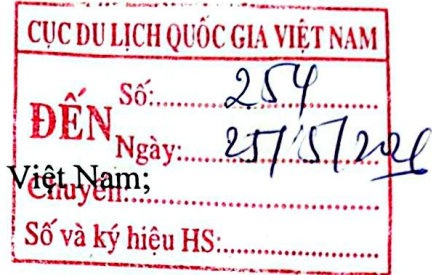 CỤC DU LỊCH QUỐC GIA VIỆT NAM
ĐẾN
Số:.......254.......
Ngày:...25/5/2026
Việt Nam;
Chuyển:................
Số và ký hiệu HS:................